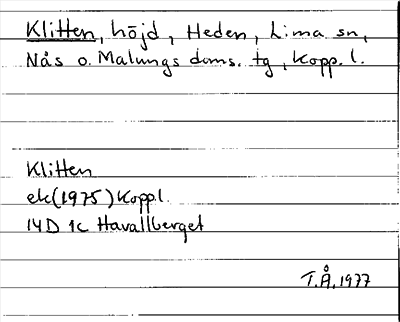 Klitten, höjd, Heden, Lima sn,
Nås o. Malungs doms. tg, Kopp. l.
Klitten
ek(1975)Kopp.l.
14D 1c Havallberget
T.Å, 1977